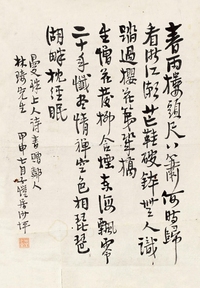 春雨樓頭尺八簫何時歸
看浙江潮芒鞋破鉢無人識
踏過櫻花第幾橋
生憎花發柳含煙東海飄零
二十年懺盡情禪空色相琵琶
湖畔枕經眠
曼殊上人詩書贈鄰人
林先生 甲申七月子愷客沙坪